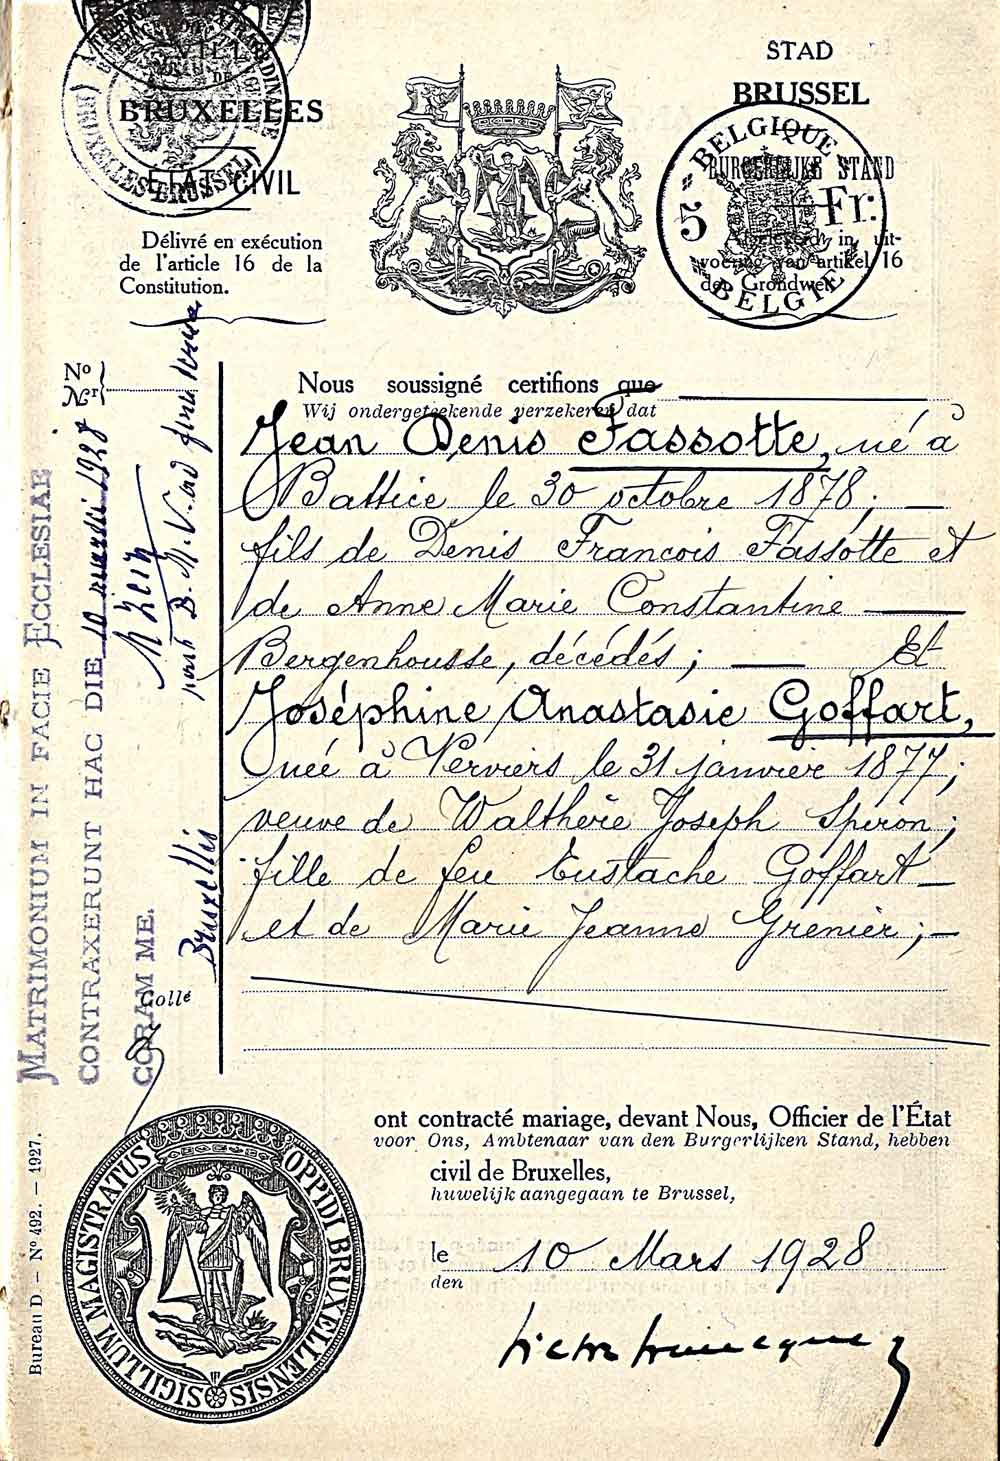 VILLE
DE
BRUXELLES
ÉTAT CIVIL
Délivré en exécution
de l'article 16 de la
Constitution.
STAD
BRUSSEL
BURGERLIJKE STAND
Afgeleverd in uit-
voering van artikel 16
der Grondwet.
BELGIQUE
5 Fr.
BELGIË
BRUXELLES-BRUSSEL
Nº
Nr
Nous soussigné certifions que
Wij ondergeteekende verzekeren dat
Jean Denis Fassotte, né à
Battice le 30 octobre 1878;
fils de Denis François Fassotte et
de Anne Marie Constantine
Bergenhousse, décédés; Et
Joséphine Anastasie Goffart,
née à Verviers le 31 janvier 1877;
veuve de Walthère Joseph Spiron;
fille de feu Eustache Goffart
et de Marie Jeanne Grenier;
MATRIMONIUM IN FACIE ECCLESIAE
CONTRAXERUNT HAC DIE 10 1928
CORAM ME.
Bruxellis
Collé
ont contracté mariage, devant Nous, Officier de l'État
voor Ons, Ambtenaar van den Burgerlijken Stand, hebben
civil de Bruxelles,
huwelijk aangegaan te Brussel,
le 10 Mars 1928
den
SIGILLUM MAGISTRATUS OPPIDI BRUXELLENSIS
Bureau D – Nº 492. – 1927.